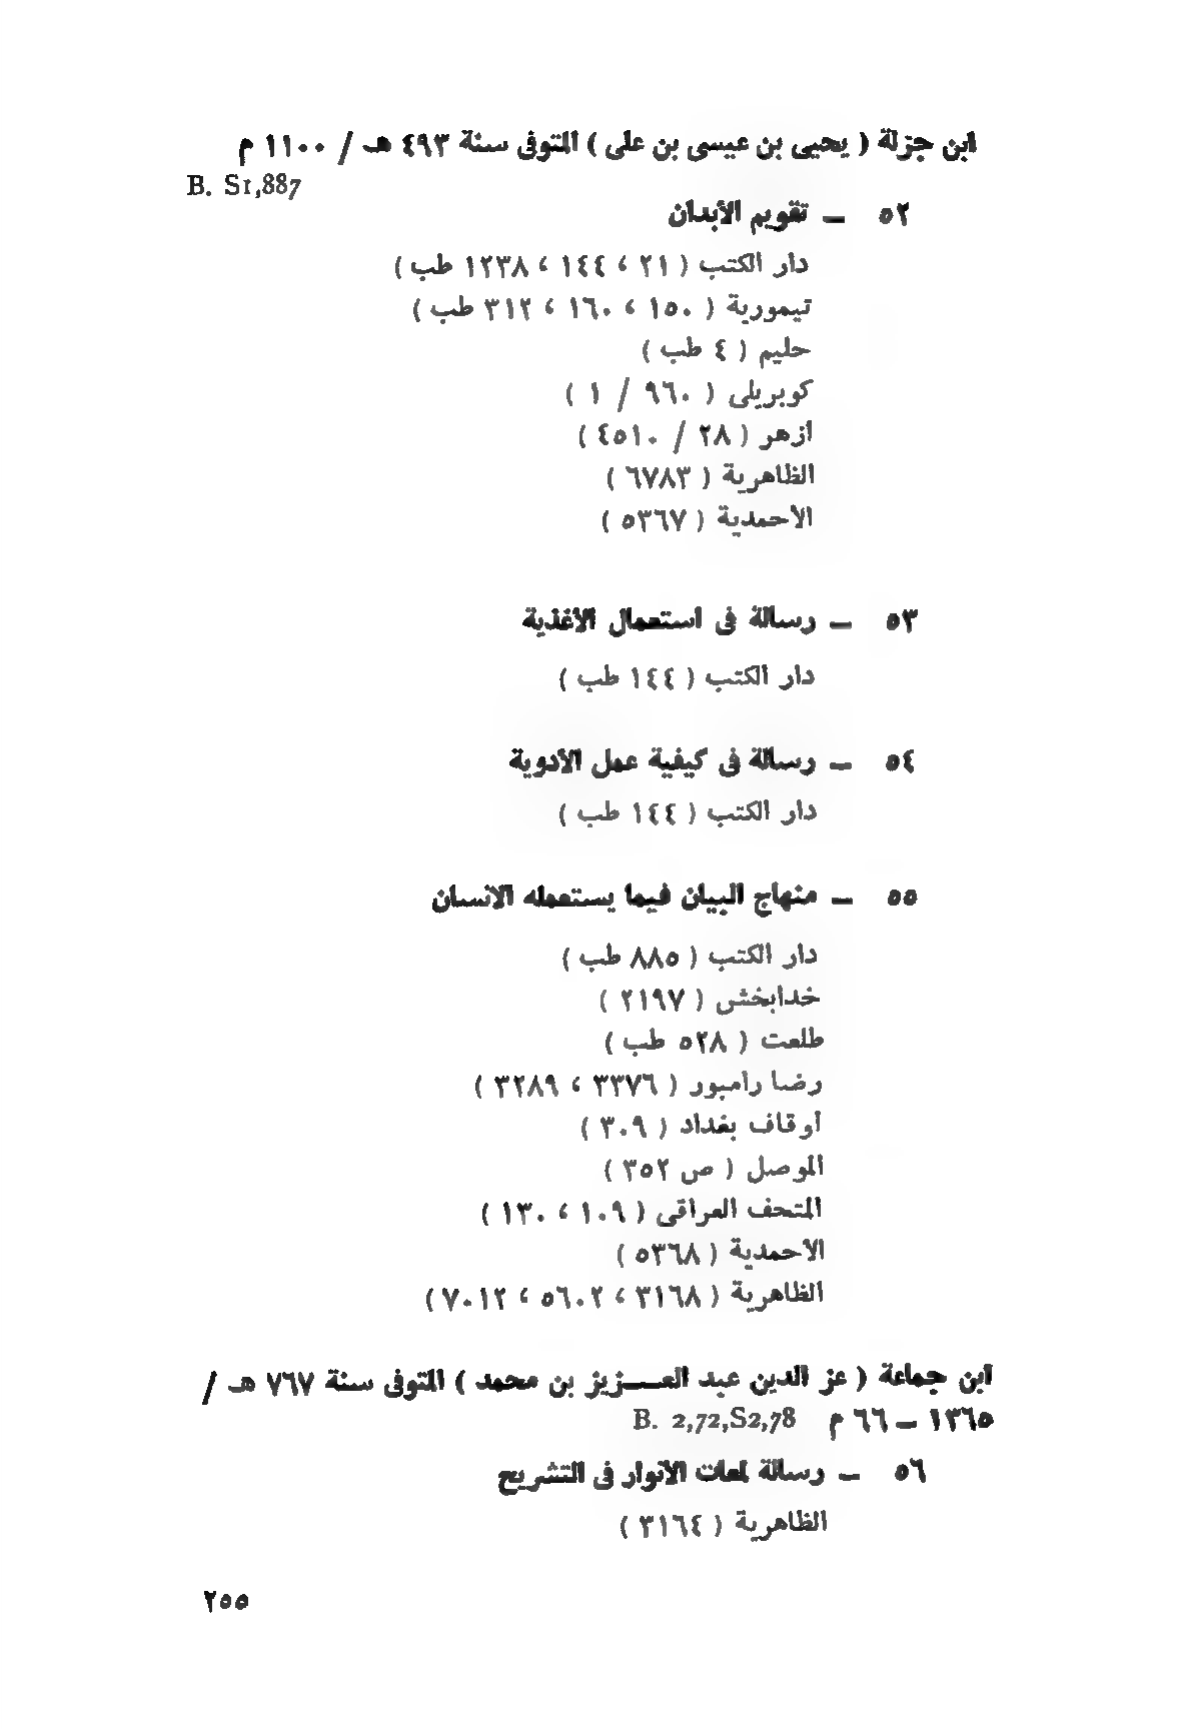 ابن جزلة ( يحيى بن عيسى بن على ) المتوفى سنة ٤٩٣ هـ / ١١٠٠ م
B. S1,887
٥٢ ــ تقويم الأبدان
دار الكتب ( ٢١ ، ١٤٤ ، ١٢٣٨ طب )
تيمورية ( ١٥٠ ، ١٦٠ ، ٣١٢ طب )
حليم ( ٤ طب )
كوبريلى ( ٩٦٠ / ١ )
أزهر ( ٢٨ / ٤٥١٠ )
الظاهرية ( ٦٧٨٣ )
الأحمدية ( ٥٣٦٧ )
٥٣ ــ رسالة فى استعمال الأغذية
دار الكتب ( ١٤٤ طب )
٥٤ ــ رسالة فى كيفية عمل الأدوية
دار الكتب ( ١٤٤ طب )
٥٥ ــ منهاج البيان فيما يستعمله الانسان
دار الكتب ( ٨٨٥ طب )
خدابخش ( ٢١٩٧ )
طلعت ( ٥٢٨ طب )
رضا رامبور ( ٣٣٧٦ ، ٣٢٨٩ )
أوقاف بغداد ( ٣٠٩ )
الموصل ( ص ٣٥٢ )
المتحف العراقى ( ١٠٩ ، ١٣٠ )
الأحمدية ( ٥٣٦٨ )
الظاهرية ( ٣١٦٨ ، ٥٦٠٢ ، ٧٠١٢ )
ابن جماعة ( عز الدين عبد العـــزيز بن محمد ) المتوفى سنة ٧٦٧ هـ /
١٣٦٥ ــ ٦٦ م B. 2,72,S2,78
٥٦ ــ رسالة لمعات الأنوار فى التشريح
الظاهرية ( ٣١٦٤ )
٢٥٥